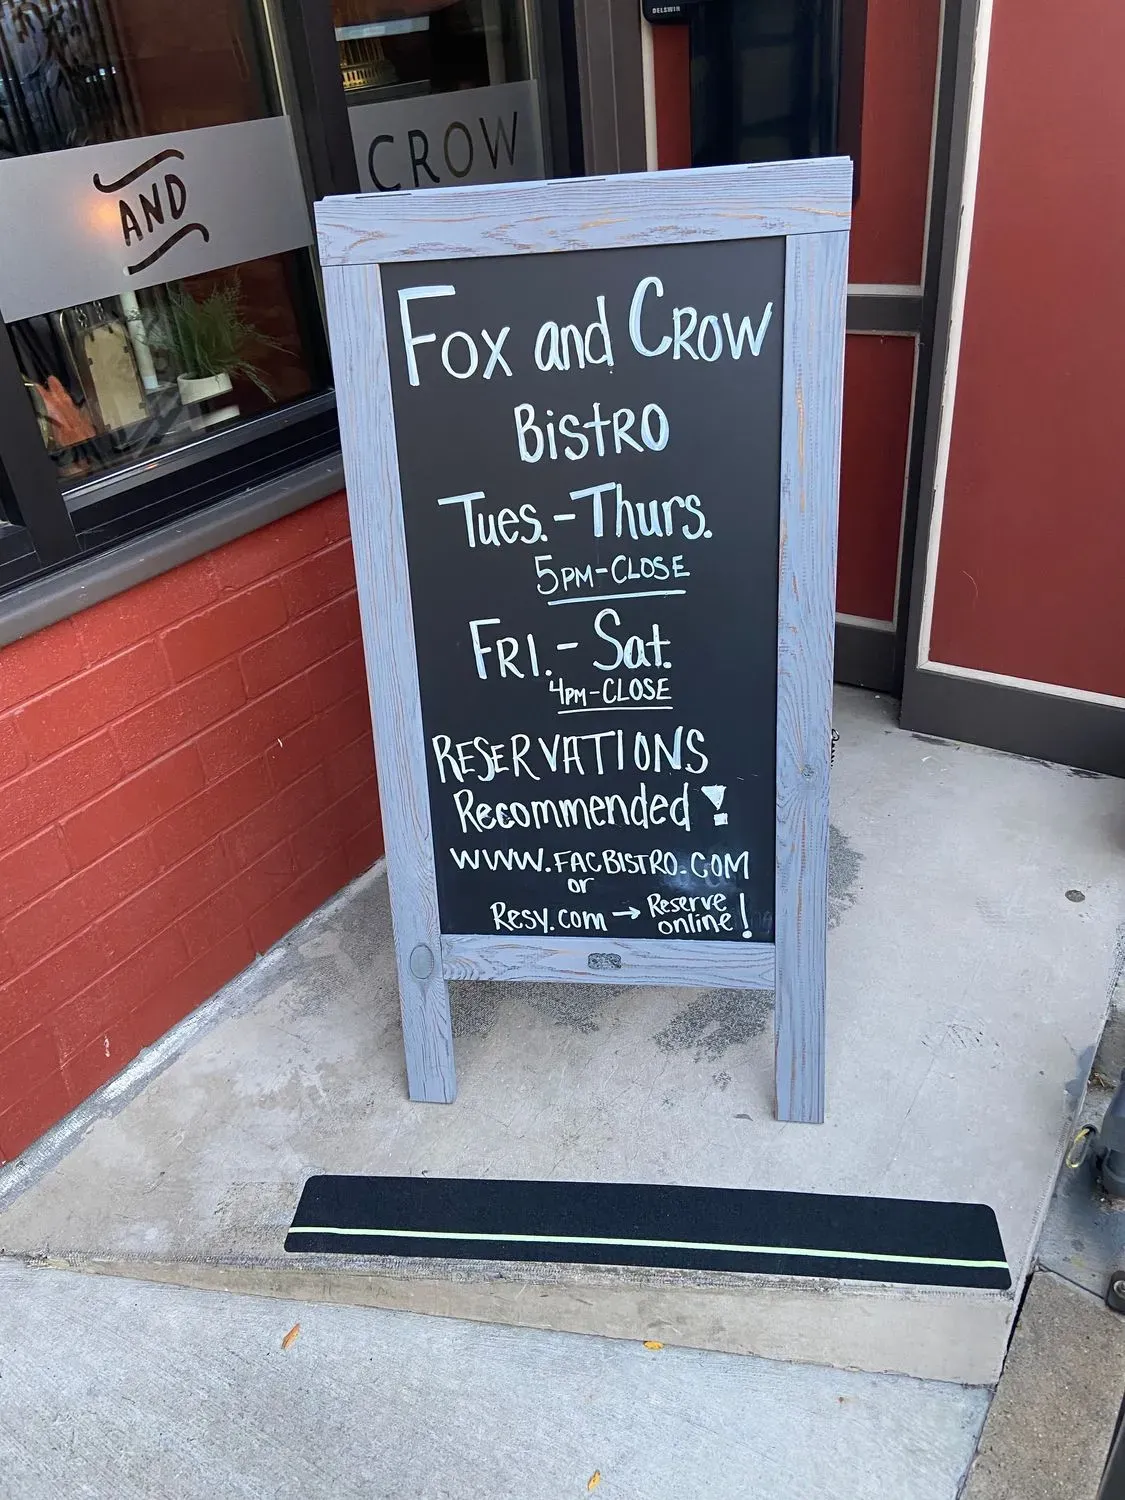 DELSWIN
AND
CROW
Fox and CROW
BistRO
Tues.-Thurs.
5PM-CLOSE
FRI.- Sat.
4PM-CLOSE
RESERVATIONS
Recommended!
WWW.FACBISTRO.COM
or
Resy.com → Reserve
online!